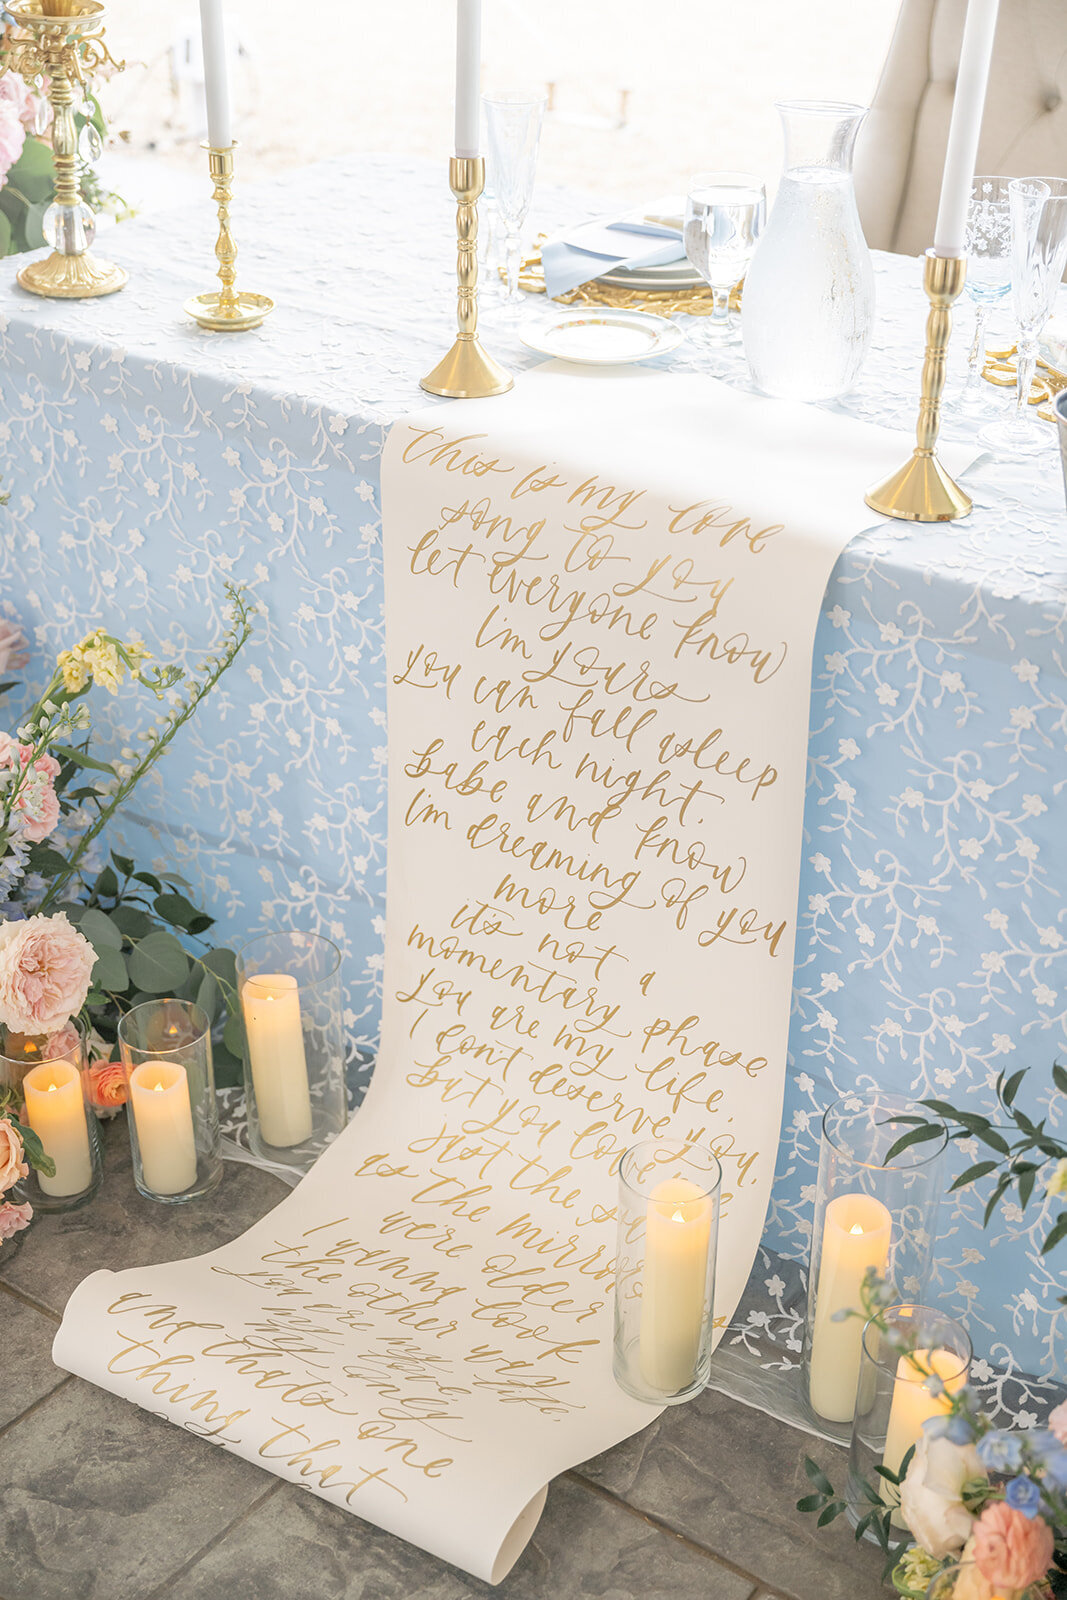 this is my love
song to you
let everyone know
I'm yours
you can fall asleep
each night.
babe and know
I'm dreaming of you
more
it's not a
momentary phase
you are my life.
I don't deserve you.
but you love
just the
as the mirror
we're older
I wanna look
the other way
you are my life.
my love
my only
and thats one
thing that